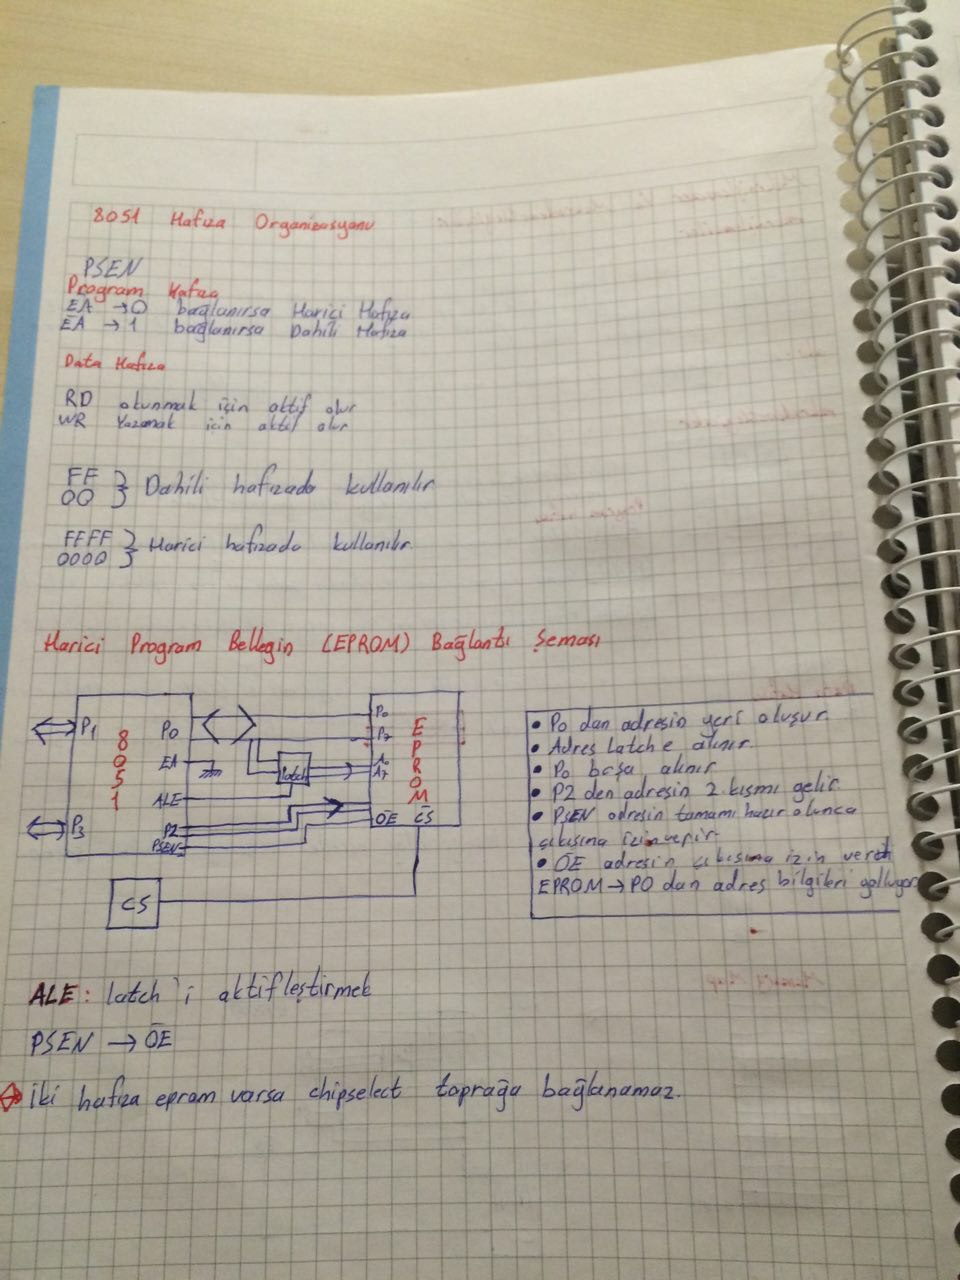 8051 Hafıza Organizasyonu
PSEN
Program Hafıza
EA → 0 bağlanırsa Harici Hafıza
EA → 1 bağlanırsa Dahili Hafıza
Data Hafıza
RD okunmak için aktif olur
WR Yazmak için aktif olur
FF
00 } Dahili hafızada kullanılır
FFFF
0000 } Harici hafızada kullanılır.
Harici Program Bellegin (EPROM) Bağlantı Şeması
P1
P3
8051
P0
EA
ALE
P2
PSEN
Latch
P0
P7
A0
A7
EPROM
OE CS
CS
• P0 dan adresin yarı oluşur.
• Adres latch e alınır.
• P0 boşa alınır
• P2 den adresin 2. kısmı gelir
• PSEN adresin tamamı hazır olunca
çıkışına izin verir.
• OE adresin çıkışına izin verdi
EPROM → P0 dan adres bilgileri yolluyor
ALE: latch'i aktifleştirmek
PSEN → OE
İki hafıza epram varsa chipselect toprağa bağlanamaz.